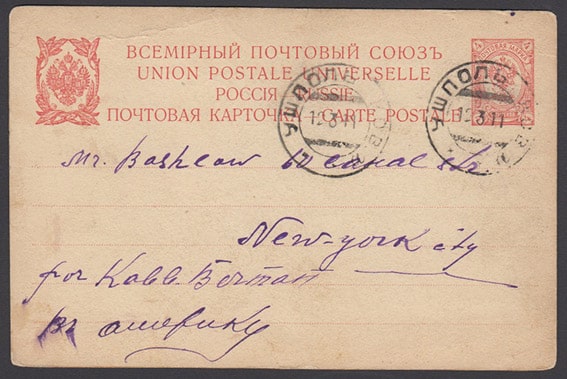 ВСЕМІРНЫЙ ПОЧТОВЫЙ СОЮЗЪ
UNION POSTALE UNIVERSELLE
РОССІЯ RUSSIE
ПОЧТОВАЯ КАРТОЧКА CARTE POSTALE
УШПОЛЬ
12 3 11
УШПОЛЬ
12 3 11
Mr. Bashlow canal str
New-york city
for Rabb. Berman
въ америку